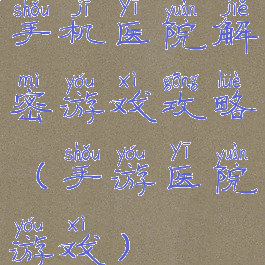 shǒu jī yī yuàn jiě
手机医院解
mì yóu xì gōng lüè
密游戏攻略
shǒu yóu yī yuàn
(手游医院
yóu xì
游戏)